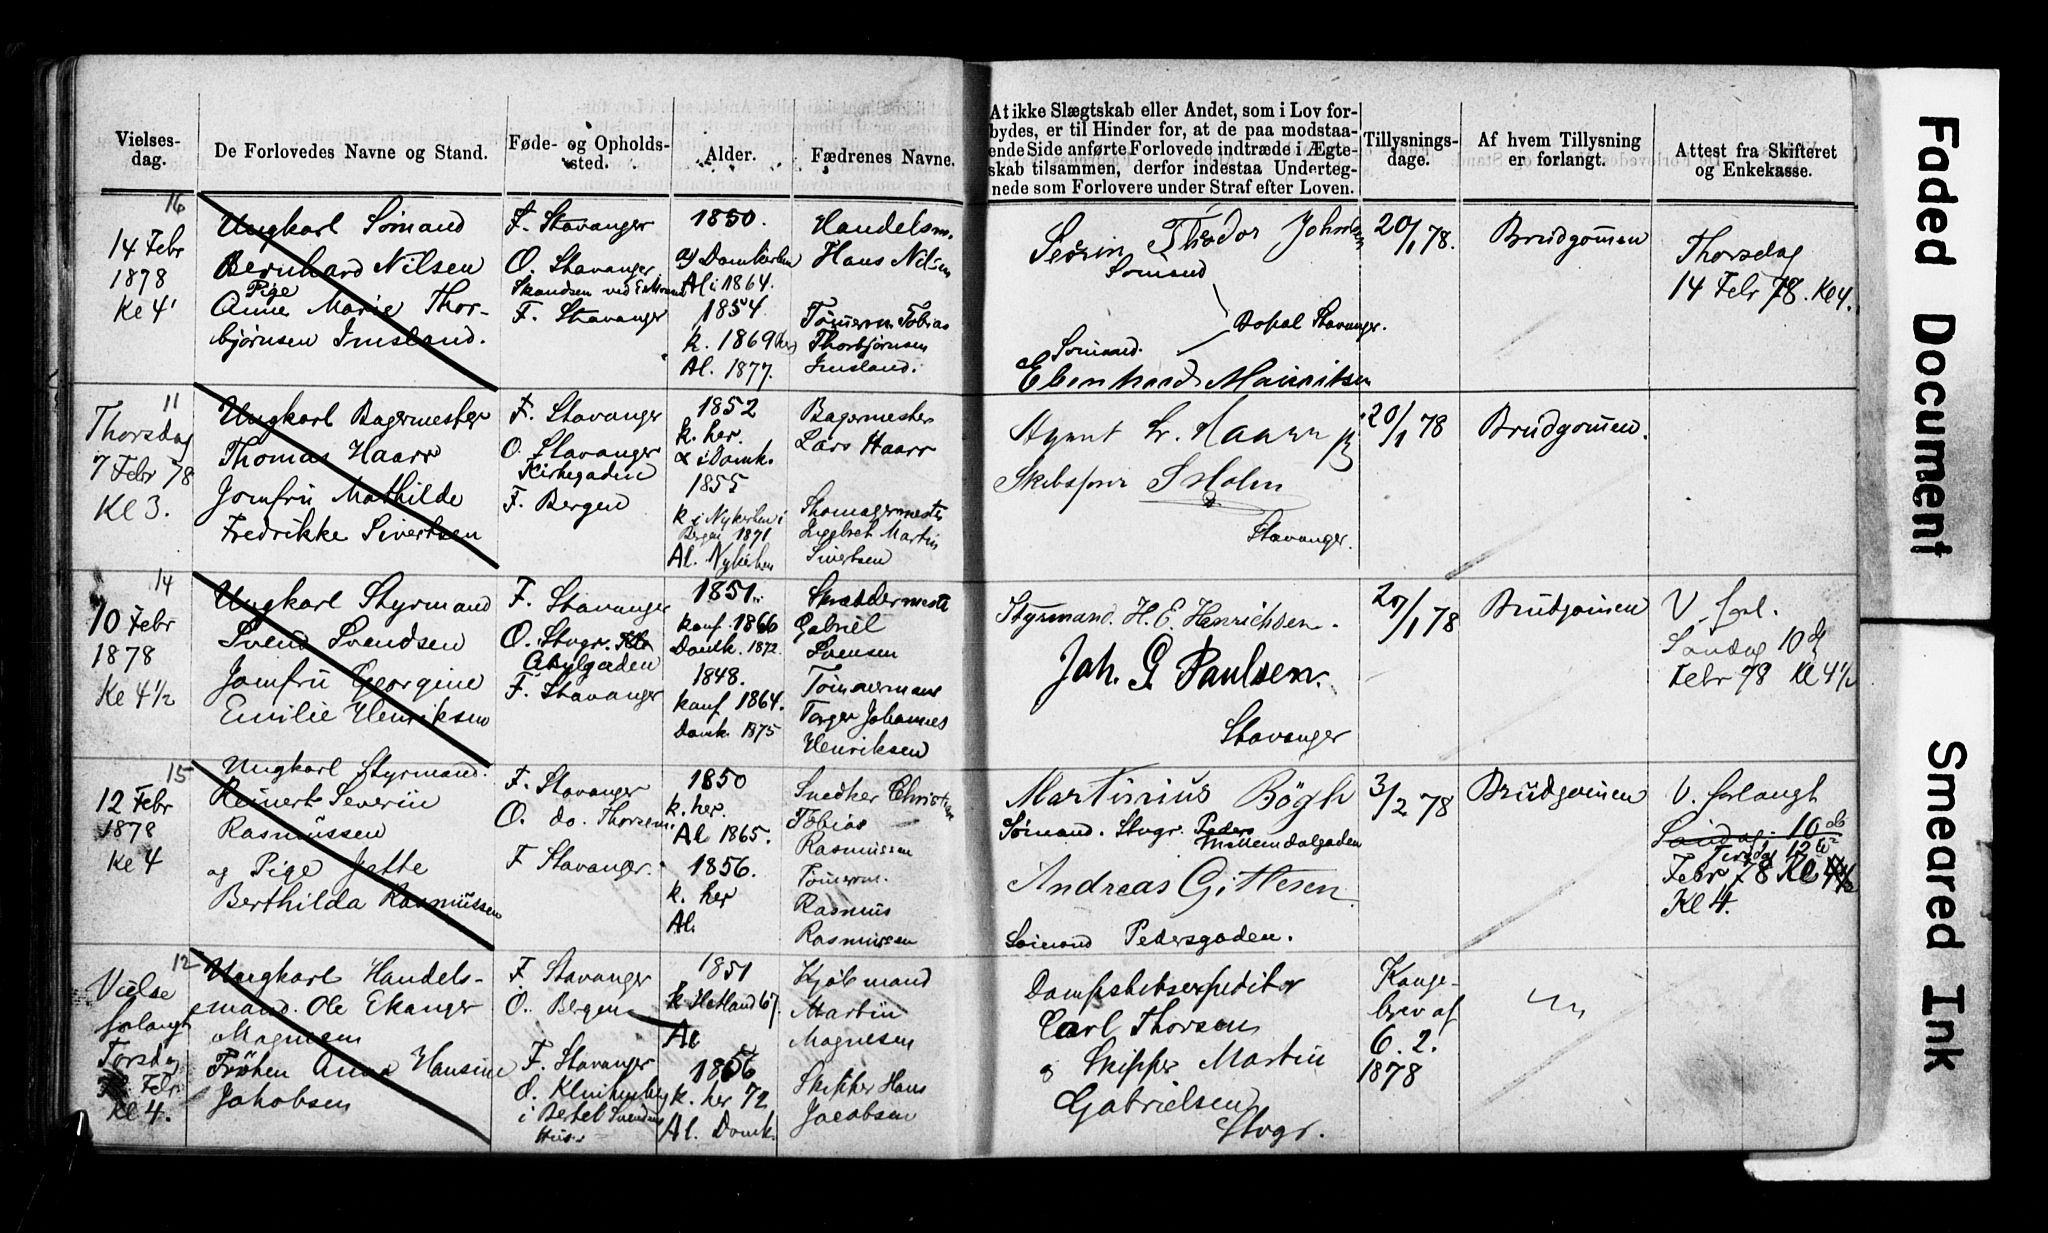 Vielses-
dag.
De Forlovedes Navne og Stand.
Føde- og Opholds-
sted.
Alder.
Fædrenes Navne.
At ikke Slægtskab eller Andet, som i Lov for-
bydes, er til Hinder for, at de paa modstaa-
ende Side anførte Forlovede indtræde i Ægte-
skab tilsammen, derfor indestaa Underteg-
nede som Forlovere under Straf efter Loven.
Tillysnings-
dage.
Af hvem Tillysning
er forlangt.
Attest fra Skifteret
og Enkekasse.
16
14 Febr
1878
Kl 4
Ungkarl Sömand
Bernhard Nilsen
Pige
Anne Marie Thor-
bjørnsen Imsland.
F. Stavanger
O. Stavanger
F. Stavanger
1850.
Al i 1864.
1854.
k. 1869 her
Al. 1877.
Handelsm.
Hans Nilsen
Tömerm. Tobias
Thorbjørnsen
Imsland.
Sevrin Theodor Johnsen
Sömand
Bopæl Stavanger.
Sömand.
Ebenhard Mauritsen
20/1 78.
Brudgommen
Thorsdag
14 Febr 78. Kl 4.
11
Thorsdag
7 Febr 78
Kl 3.
Ungkarl Bagermester
Thomas Haarr
Jomfru Mathilde
Fredrikke Sivertsen
F. Stavanger
O. Stavanger
Kirkegaden
F. Bergen
1852
k. her.
1855
k i Nykirken i
Bergen 1871
Al. Nykirken
Bagermester
Lars Haarr
Martin
Sivertsen
Agent L. Haarr
S Holm
Stavanger.
20/1 78
Brudgommen.
14
10 Febr
1878
Kl 4½
Ungkarl Styrmand
Svend Svendsen
Jomfru Georgine
Emilie Henriksen
F. Stavanger
O. Stvgr.
F. Stavanger
1851.
konf. 1866
Domk. 1872.
1848.
konf 1864.
Domk. 1875
Skræddermester
Gabriel
Svensen
Tömmermand
Torger Johannes
Henriksen
Styrmand. H. E. Henrichsen.
Joh. G. Paulsen.
Stavanger
27/1 78
Brudgommen
V. forl.
Søndag 10de
Febr 78 Kl 4½
15
12 Febr
1878
Kl 4
Ungkarl Styrmand.
Reinert Severin
Rasmussen
og Pige Jette
Berthilda Rasmussen
F. Stavanger
O. do.
F Stavanger.
1850
k. her.
Al 1865.
1856.
k. her
Al.
Snedker Christian
Tobias
Rasmussen
Tömerm.
Rasmus
Rasmussen
Martinius Bögh
Sømand. Stvgr.
Andreas Gittesen
Sömand Pedersgaden.
3/2 78
Brudgommen
V. forlangt
Söndag 10de
Tirsdag 12te
Febr 78 Kl 4½
Kl 4.
12
Vielse
forlangt
Torsdag
Febr
Kl 4.
Ungkarl Handels-
mand. Ole Ekanger
Magnesen
Frøken Anna Hansine
Jakobsen
F Stavanger
O. Bergen
F. Stavanger
O. Klinkenberg
Hus.
1851
k Hetland 67
Al
1856
k. her 72
Al. Domk.
Kjøbmand
Martin
Magnesen
Skipper Hans
Jacobsen
Dampskibsexpeditör
Carl Thorsen
og Skipper Martin
Gabrielsen
Stvgr.
Konge-
brev af
6. 2.
1878
Faded Document
Smeared Ink